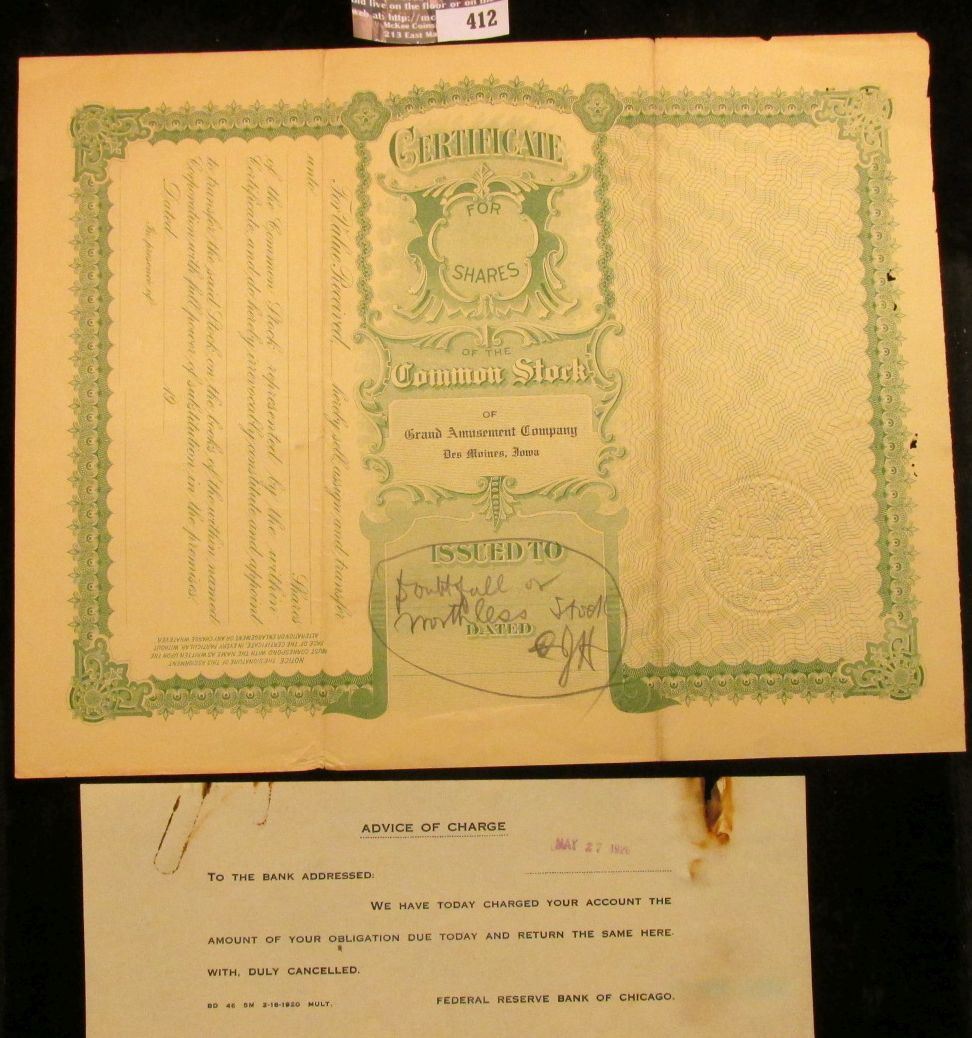 nd live on the floor or on the
web at: http://mc
McKee Coins
213 East Ma
412
CERTIFICATE
FOR
SHARES
OF THE
Common Stock
OF
Grand Amusement Company
Des Moines, Iowa
ISSUED TO
Doubtfull or
worthless Stock
DATED
CJH
For Value Received, hereby sell, assign and transfer
unto
Shares
of the Common Stock represented by the within
Certificate and do hereby irrevocably constitute and appoint
to transfer the said Stock on the books of the within named
Corporation with full power of substitution in the premises.
Dated 19
In presence of
NOTICE. THE SIGNATURE OF THIS ASSIGNMENT
MUST CORRESPOND WITH THE NAME AS WRITTEN UPON THE
FACE OF THE CERTIFICATE, IN EVERY PARTICULAR, WITHOUT
ALTERATION OR ENLARGEMENT OR ANY CHANGE WHATEVER.
ADVICE OF CHARGE
MAY 27
TO THE BANK ADDRESSED:
WE HAVE TODAY CHARGED YOUR ACCOUNT THE
AMOUNT OF YOUR OBLIGATION DUE TODAY AND RETURN THE SAME HERE-
WITH, DULY CANCELLED.
BD 46 5M 2-18-1920 MULT.
FEDERAL RESERVE BANK OF CHICAGO.